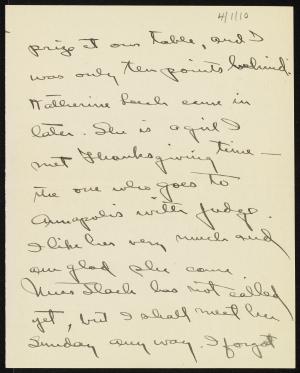 4/1/10
prize at our table, and I
was only ten points behind.
Katherine Leech came in
later. She is a girl I
met Thanksgiving time —
the one who goes to
Annapolis with Judge.
I like her very much and
am glad she came.
Miss Slack has not called
yet, but I shall meet her
Sunday any way. I forgot